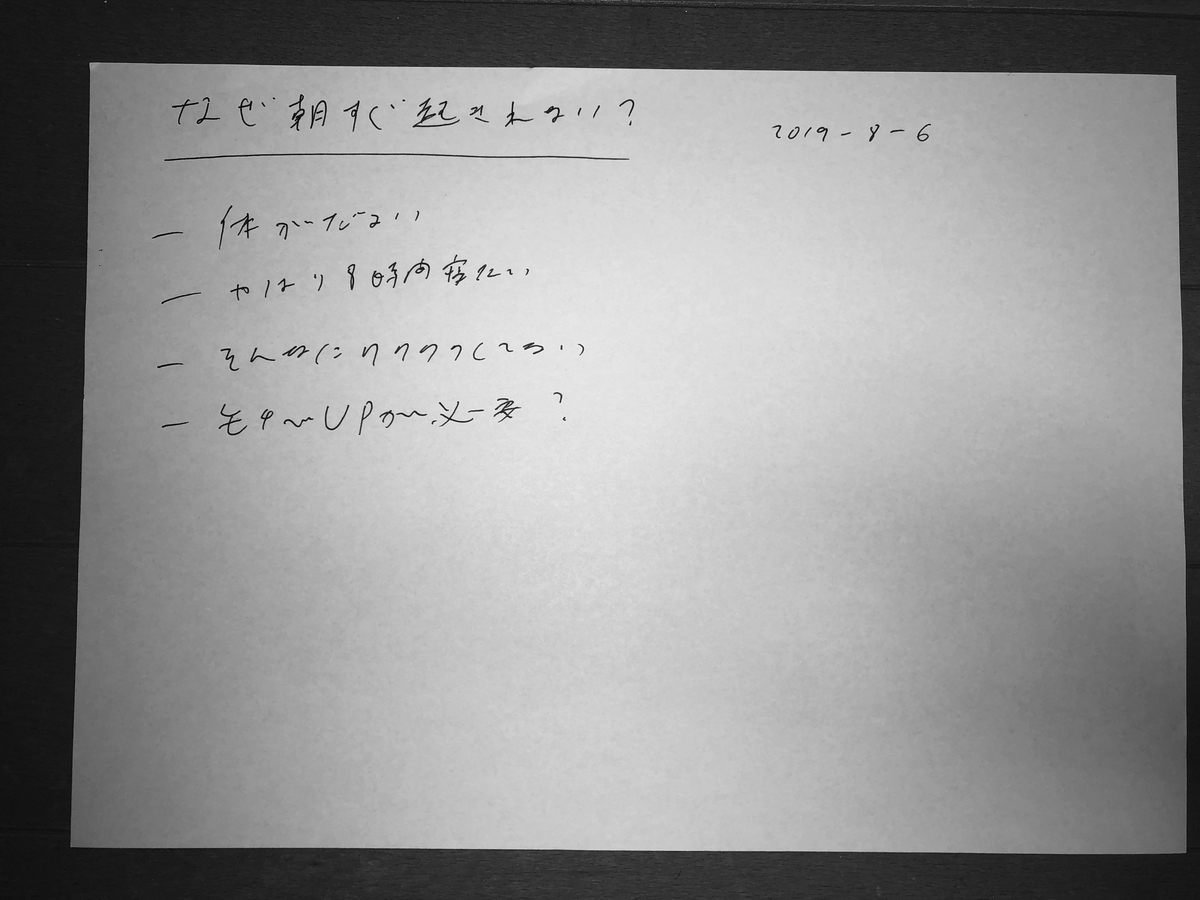 なぜ朝すぐ起きれない?
2019-8-6
— 体がだるい
— やはり8時間寝たい
— そんなにワクワクしてない
— モチベUPが必要?